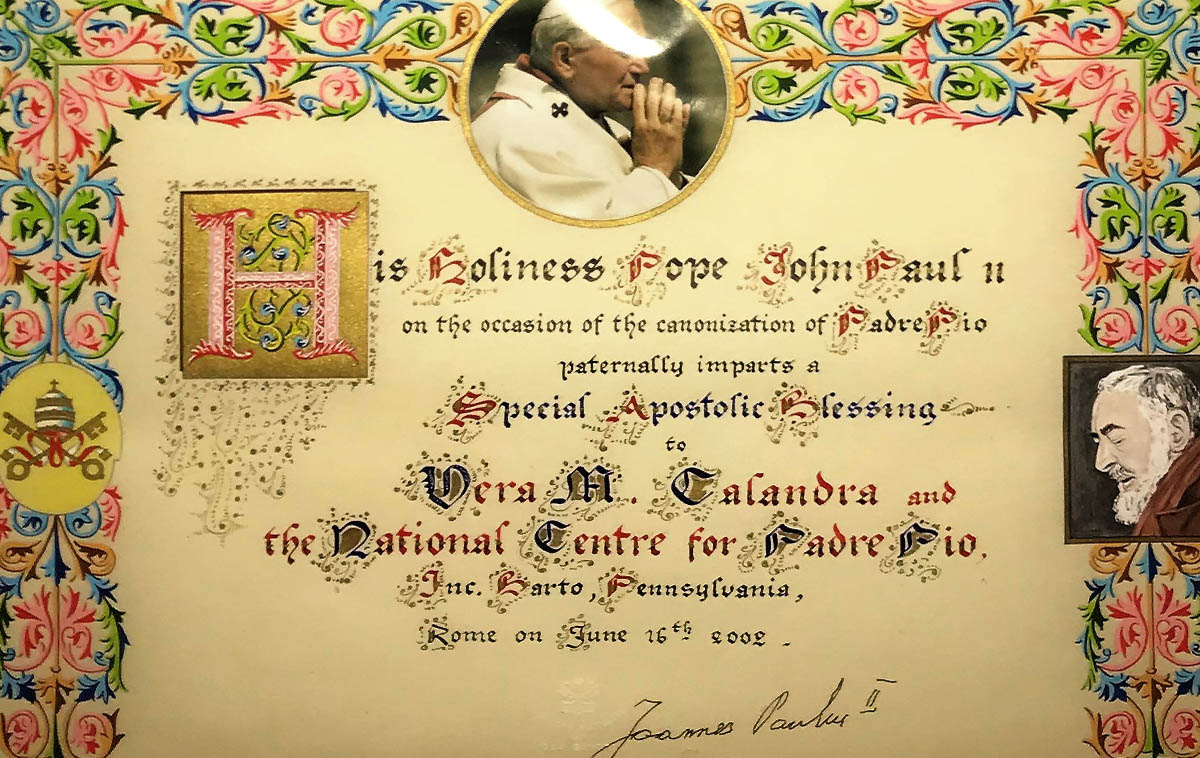 His Holiness Pope John Paul II
on the occasion of the canonization of Padre Pio
paternally imparts a
Special Apostolic Blessing
to
Vera M. Calandra and
the National Centre for Padre Pio,
Inc. Barto, Pennsylvania,
Rome on June 16th 2002.
Joannes Paulus II